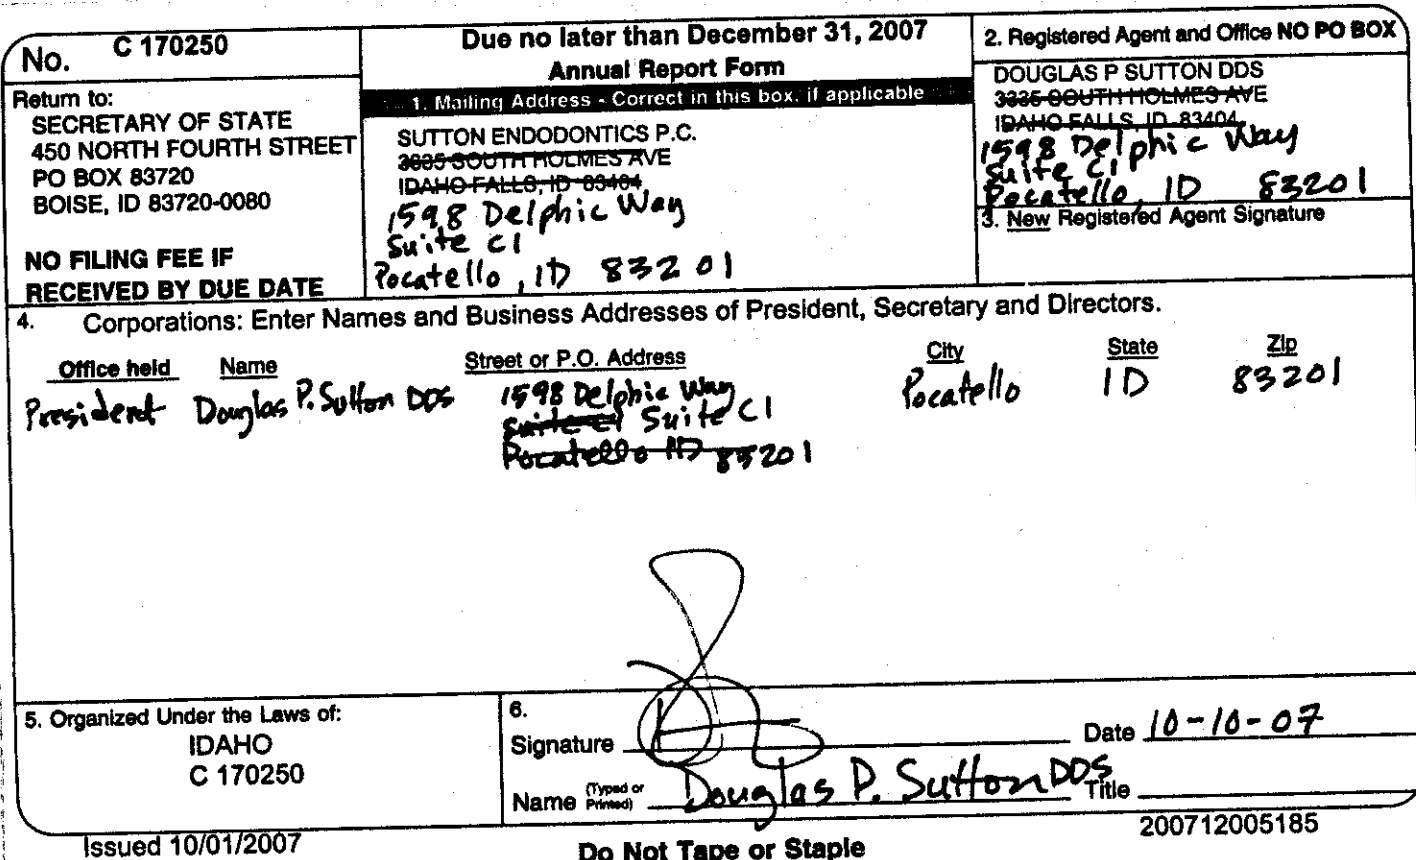 No. C 170250
Due no later than December 31, 2007
Annual Report Form
Return to:
SECRETARY OF STATE
450 NORTH FOURTH STREET
PO BOX 83720
BOISE, ID 83720-0080
NO FILING FEE IF
RECEIVED BY DUE DATE
1. Mailing Address - Correct in this box, if applicable
SUTTON ENDODONTICS P.C.
3335 SOUTH HOLMES AVE
IDAHO FALLS, ID 83404
1598 Delphic Way
Suite C1
Pocatello, ID 83201
2. Registered Agent and Office NO PO BOX
DOUGLAS P SUTTON DDS
3335 SOUTH HOLMES AVE
IDAHO FALLS, ID 83404
1598 Delphic Way
Suite C1
Pocatello, ID 83201
3. New Registered Agent Signature
4. Corporations: Enter Names and Business Addresses of President, Secretary and Directors.
Office held Name Street or P.O. Address City State Zip
President Douglas P. Sutton DDS 1598 Delphic Way Pocatello ID 83201
Suite C1 Suite C1
Pocatello ID 83201
5. Organized Under the Laws of:
IDAHO
C 170250
6.
Signature Date 10-10-07
Name (Typed or Printed) Douglas P. Sutton DDS Title
Issued 10/01/2007
Do Not Tape or Staple
200712005185